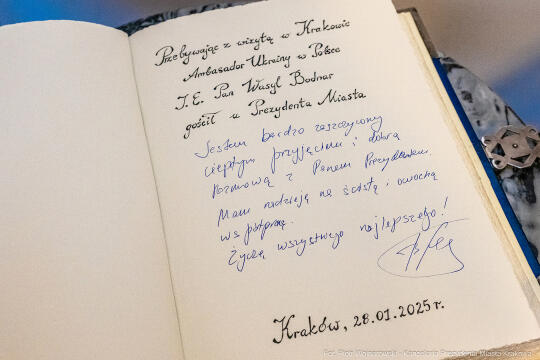 Przebywając z wizytą w Krakowie
Ambasador Ukrainy w Polsce
J. E. Pan Wasyl Bodnar
gościł u Prezydenta Miasta
Jestem bardzo zaszczycony
ciepłym przyjęciem i dobrą
rozmową z Panem Prezydentem.
Mam nadzieję na ścisłą i owocną
współpracę.
Życzę wszystkiego najlepszego!
Kraków, 28.01.2025 r.
Fot. Piotr Wojnarowski - Kancelaria Prezydenta Miasta Krakowa